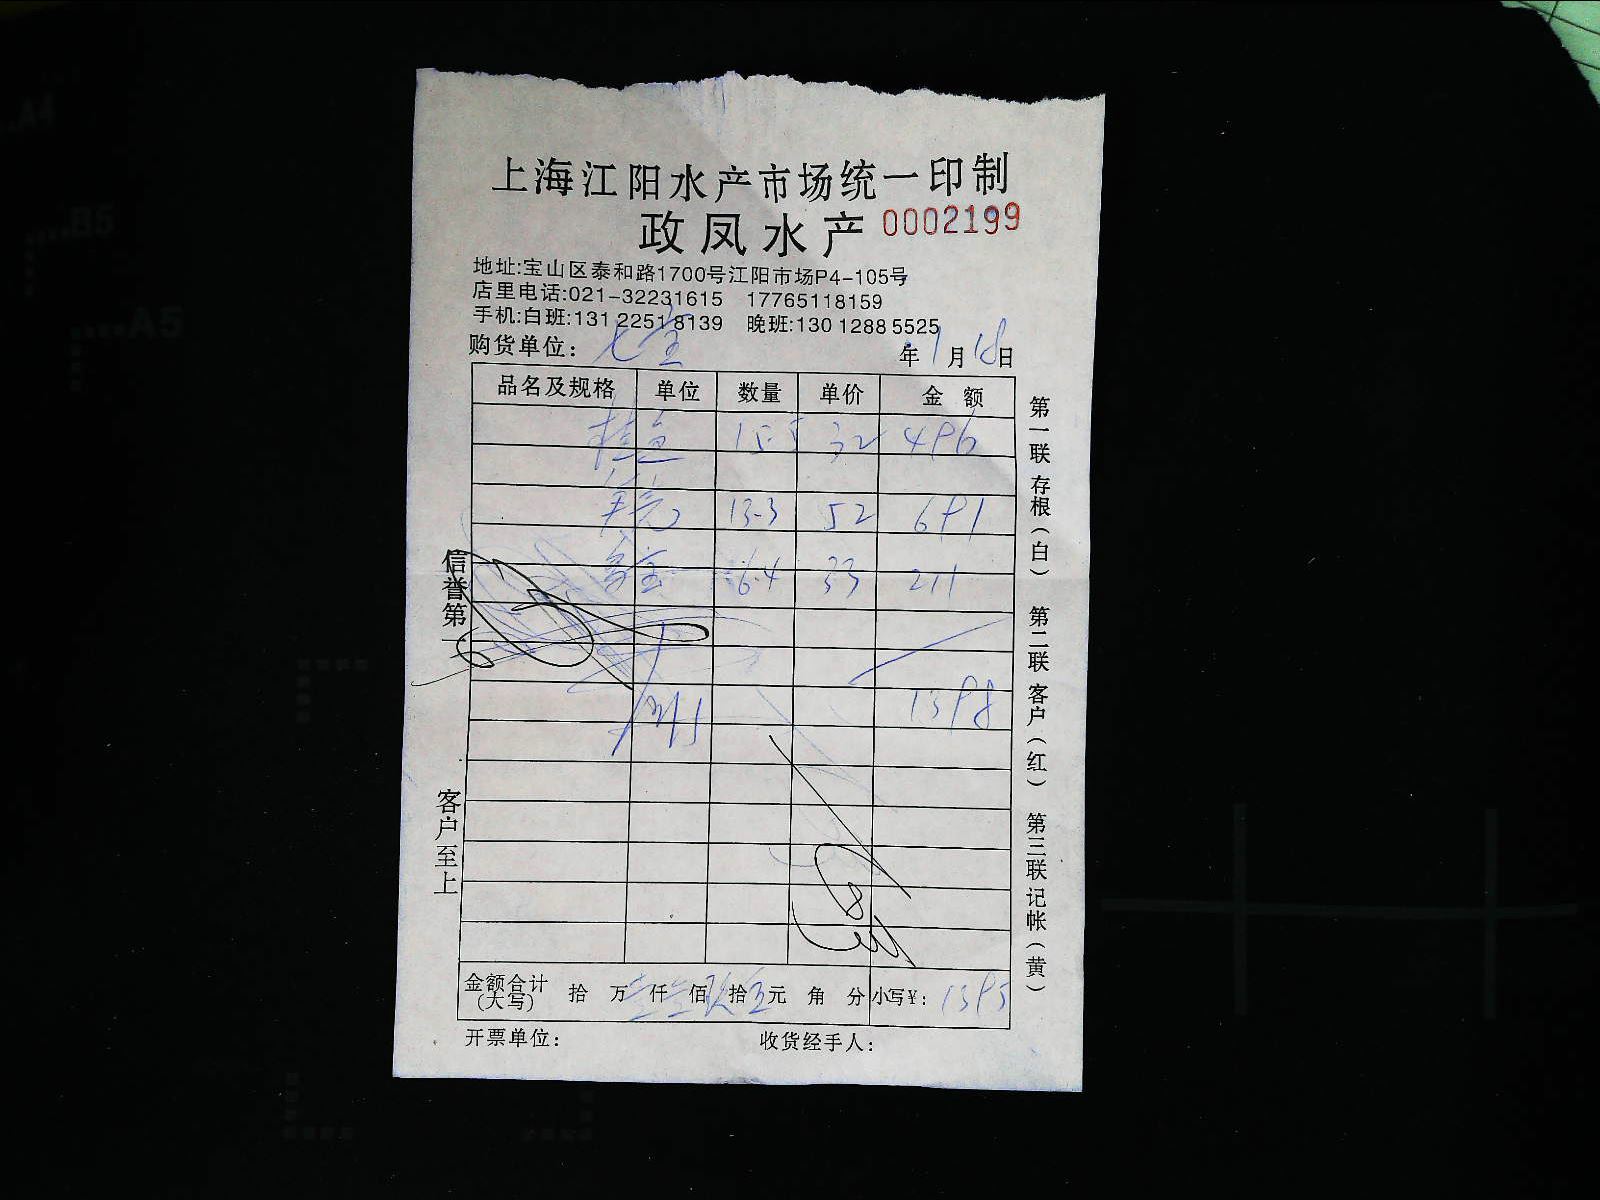 上海江阳水产市场统一印制
政凤水产 0002199
地址:宝山区泰和路1700号江阳市场P4-105号
店里电话:021-32231615 17765118159
手机:白班:131 2251 8139 晚班:130 1288 5525
购货单位: 七宝 年 月18日
品名及规格 单位 数量 单价 金 额
桂鱼 15.5 32 496
13.3 52 691
6.4 33 211
1398
金额合计(大写) 拾 万壹仟叁佰玖拾五元 角 分 小写¥: 1395
开票单位: 收货经手人:
信誉第一
客户至上
第一联 存根(白) 第二联 客户(红) 第三联 记帐(黄)